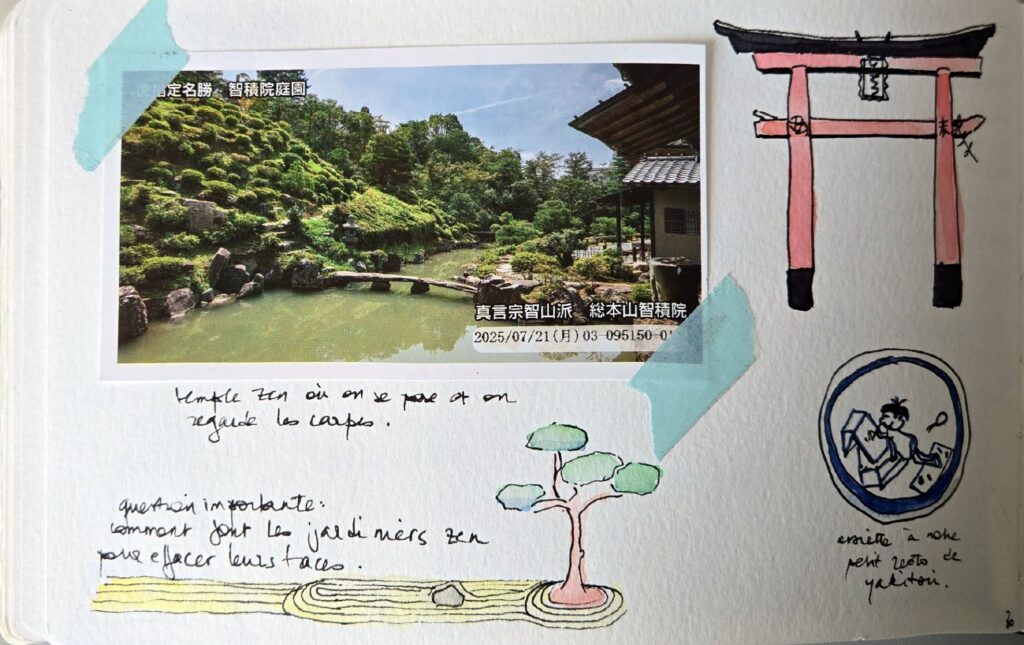 指定名勝 智積院庭園
真言宗智山派 総本山智積院
2025/07/21(月) 03-095150-01
temple zen où on se pose et on
regarde les carpes.
question importante:
comment font les jardiniers zen
pour effacer leurs traces.
assiette à notre
petit resto de
yakitori.